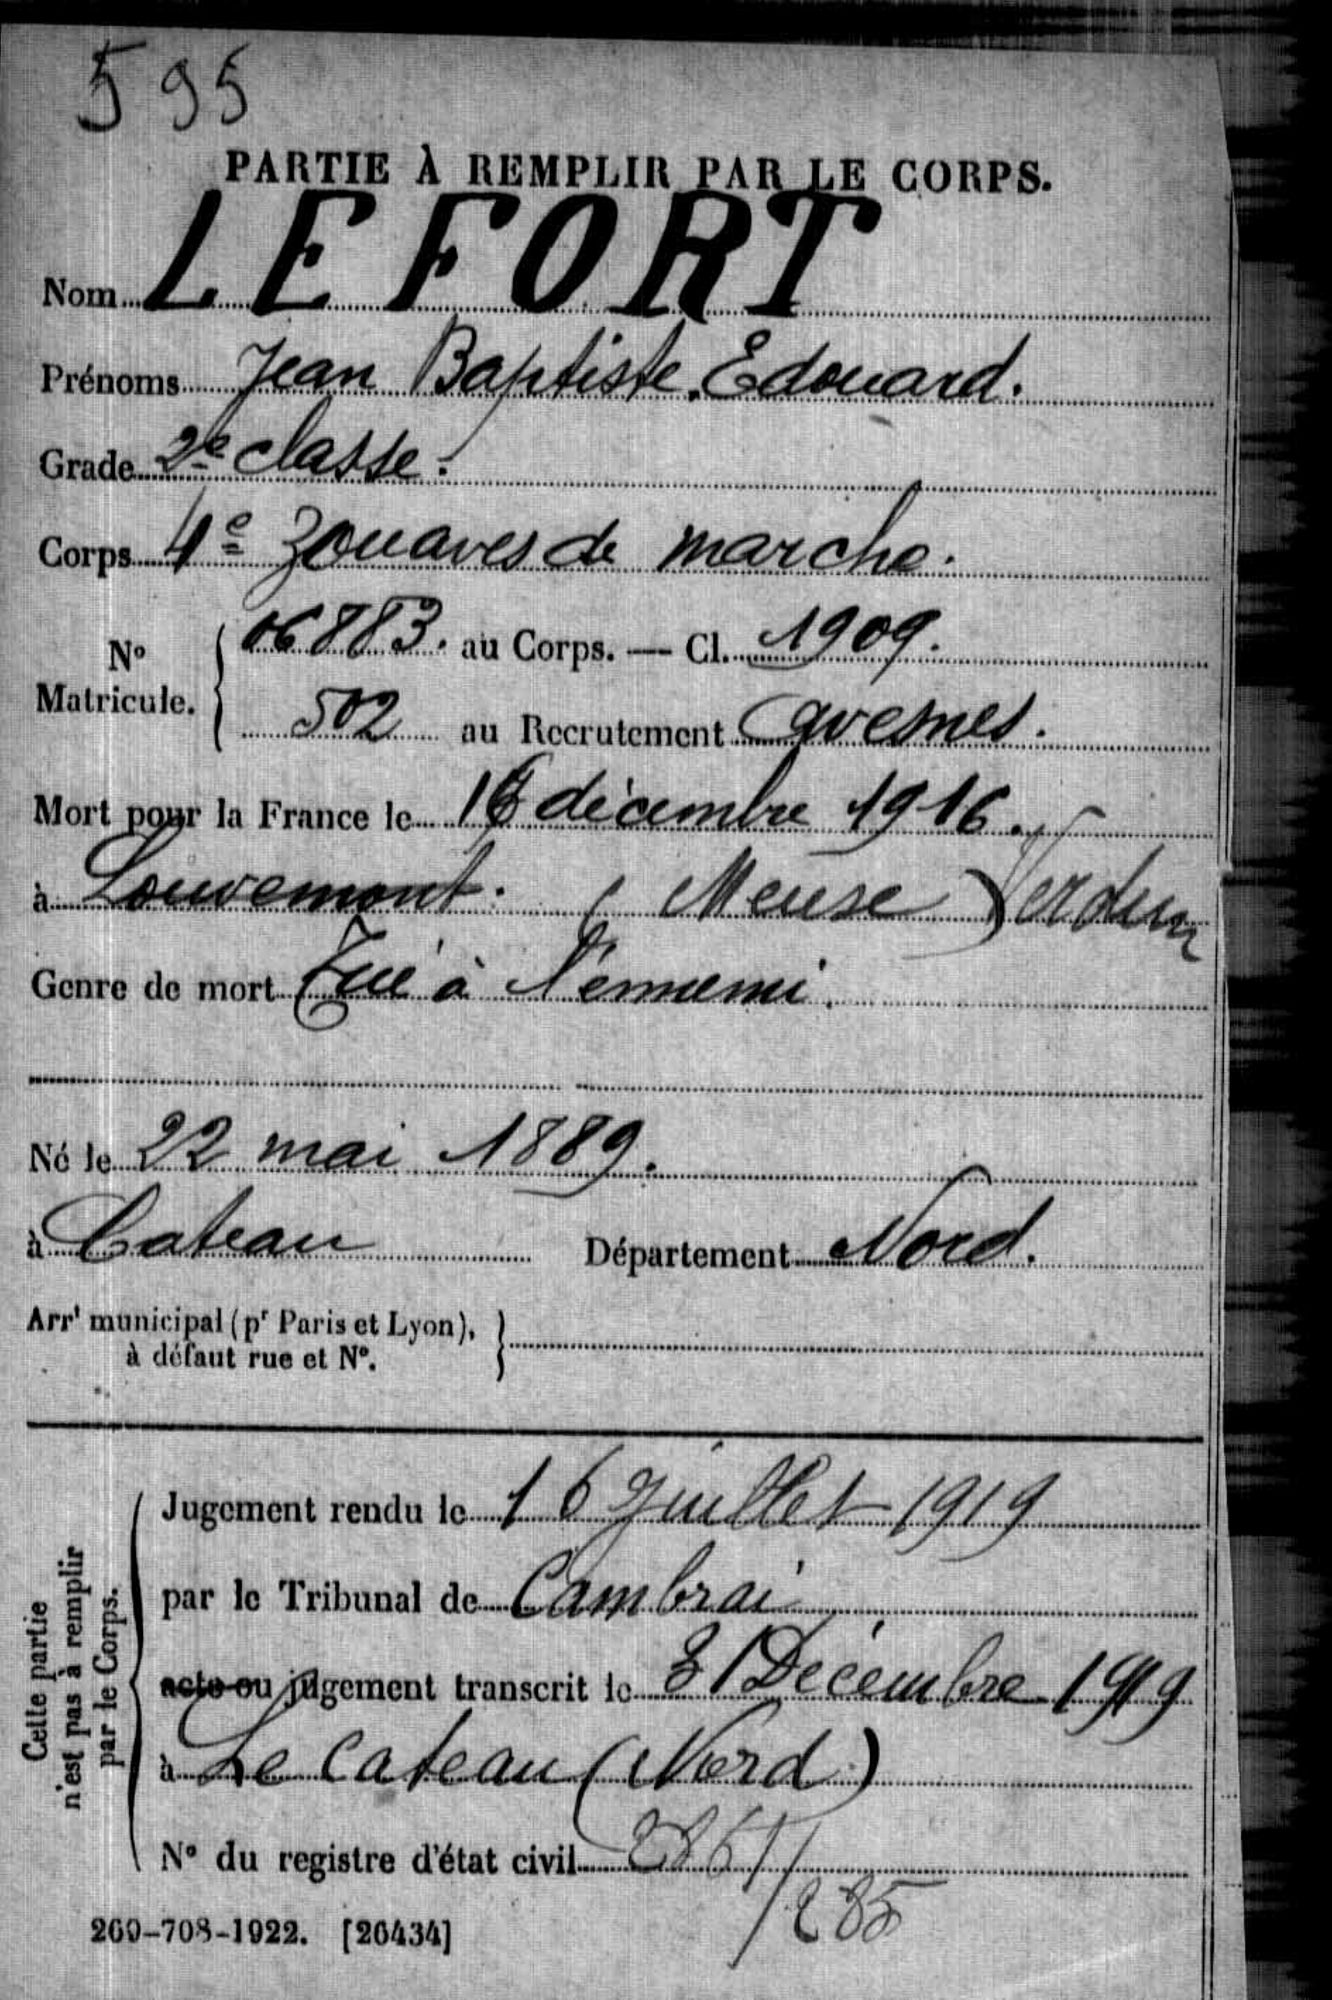 595
PARTIE À REMPLIR PAR LE CORPS.
Nom LEFORT
Prénoms Jean Baptiste Edouard.
Grade 2e classe.
Corps 4e Zouaves de marche.
N° Matricule. { 06883. au Corps. — Cl. 1909.
502 au Recrutement Avesnes.
Mort pour la France le décembre 1916.
à Louvemont. (Meuse) Verdun
Genre de mort Tué à l'ennemi.
Né le 22 mai 1889.
à Cateau Département Nord.
Arrt municipal (pr Paris et Lyon), à défaut rue et N°. }
Cette partie n'est pas à remplir par le Corps.
Jugement rendu le 16 Juillet 1919
par le Tribunal de Cambrai
acte ou jugement transcrit le 31 Décembre 1919
à Le Cateau (Nord)
N° du registre d'état civil
/285
269-708-1922. [26434]